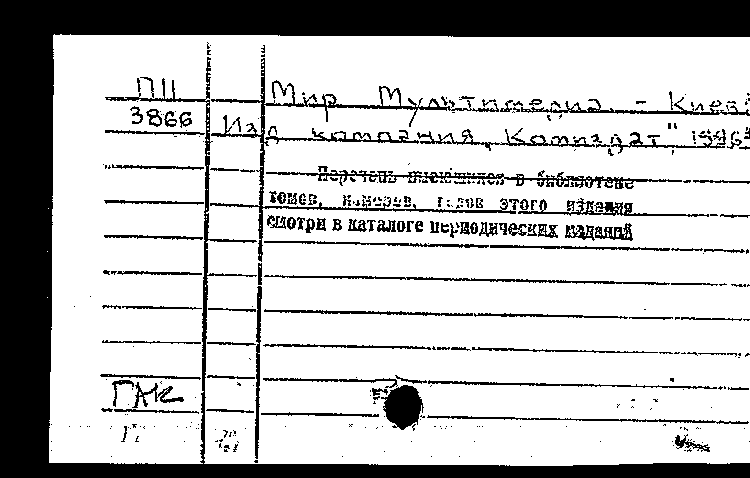 П11
Мир Мультимедиа. - Киев:
3866 Изд компания "Комиздат", 1996
Перечень имеющихся в библиотеке
томов, номеров, годов этого издания
смотри в каталоге периодических изданий
ГАК